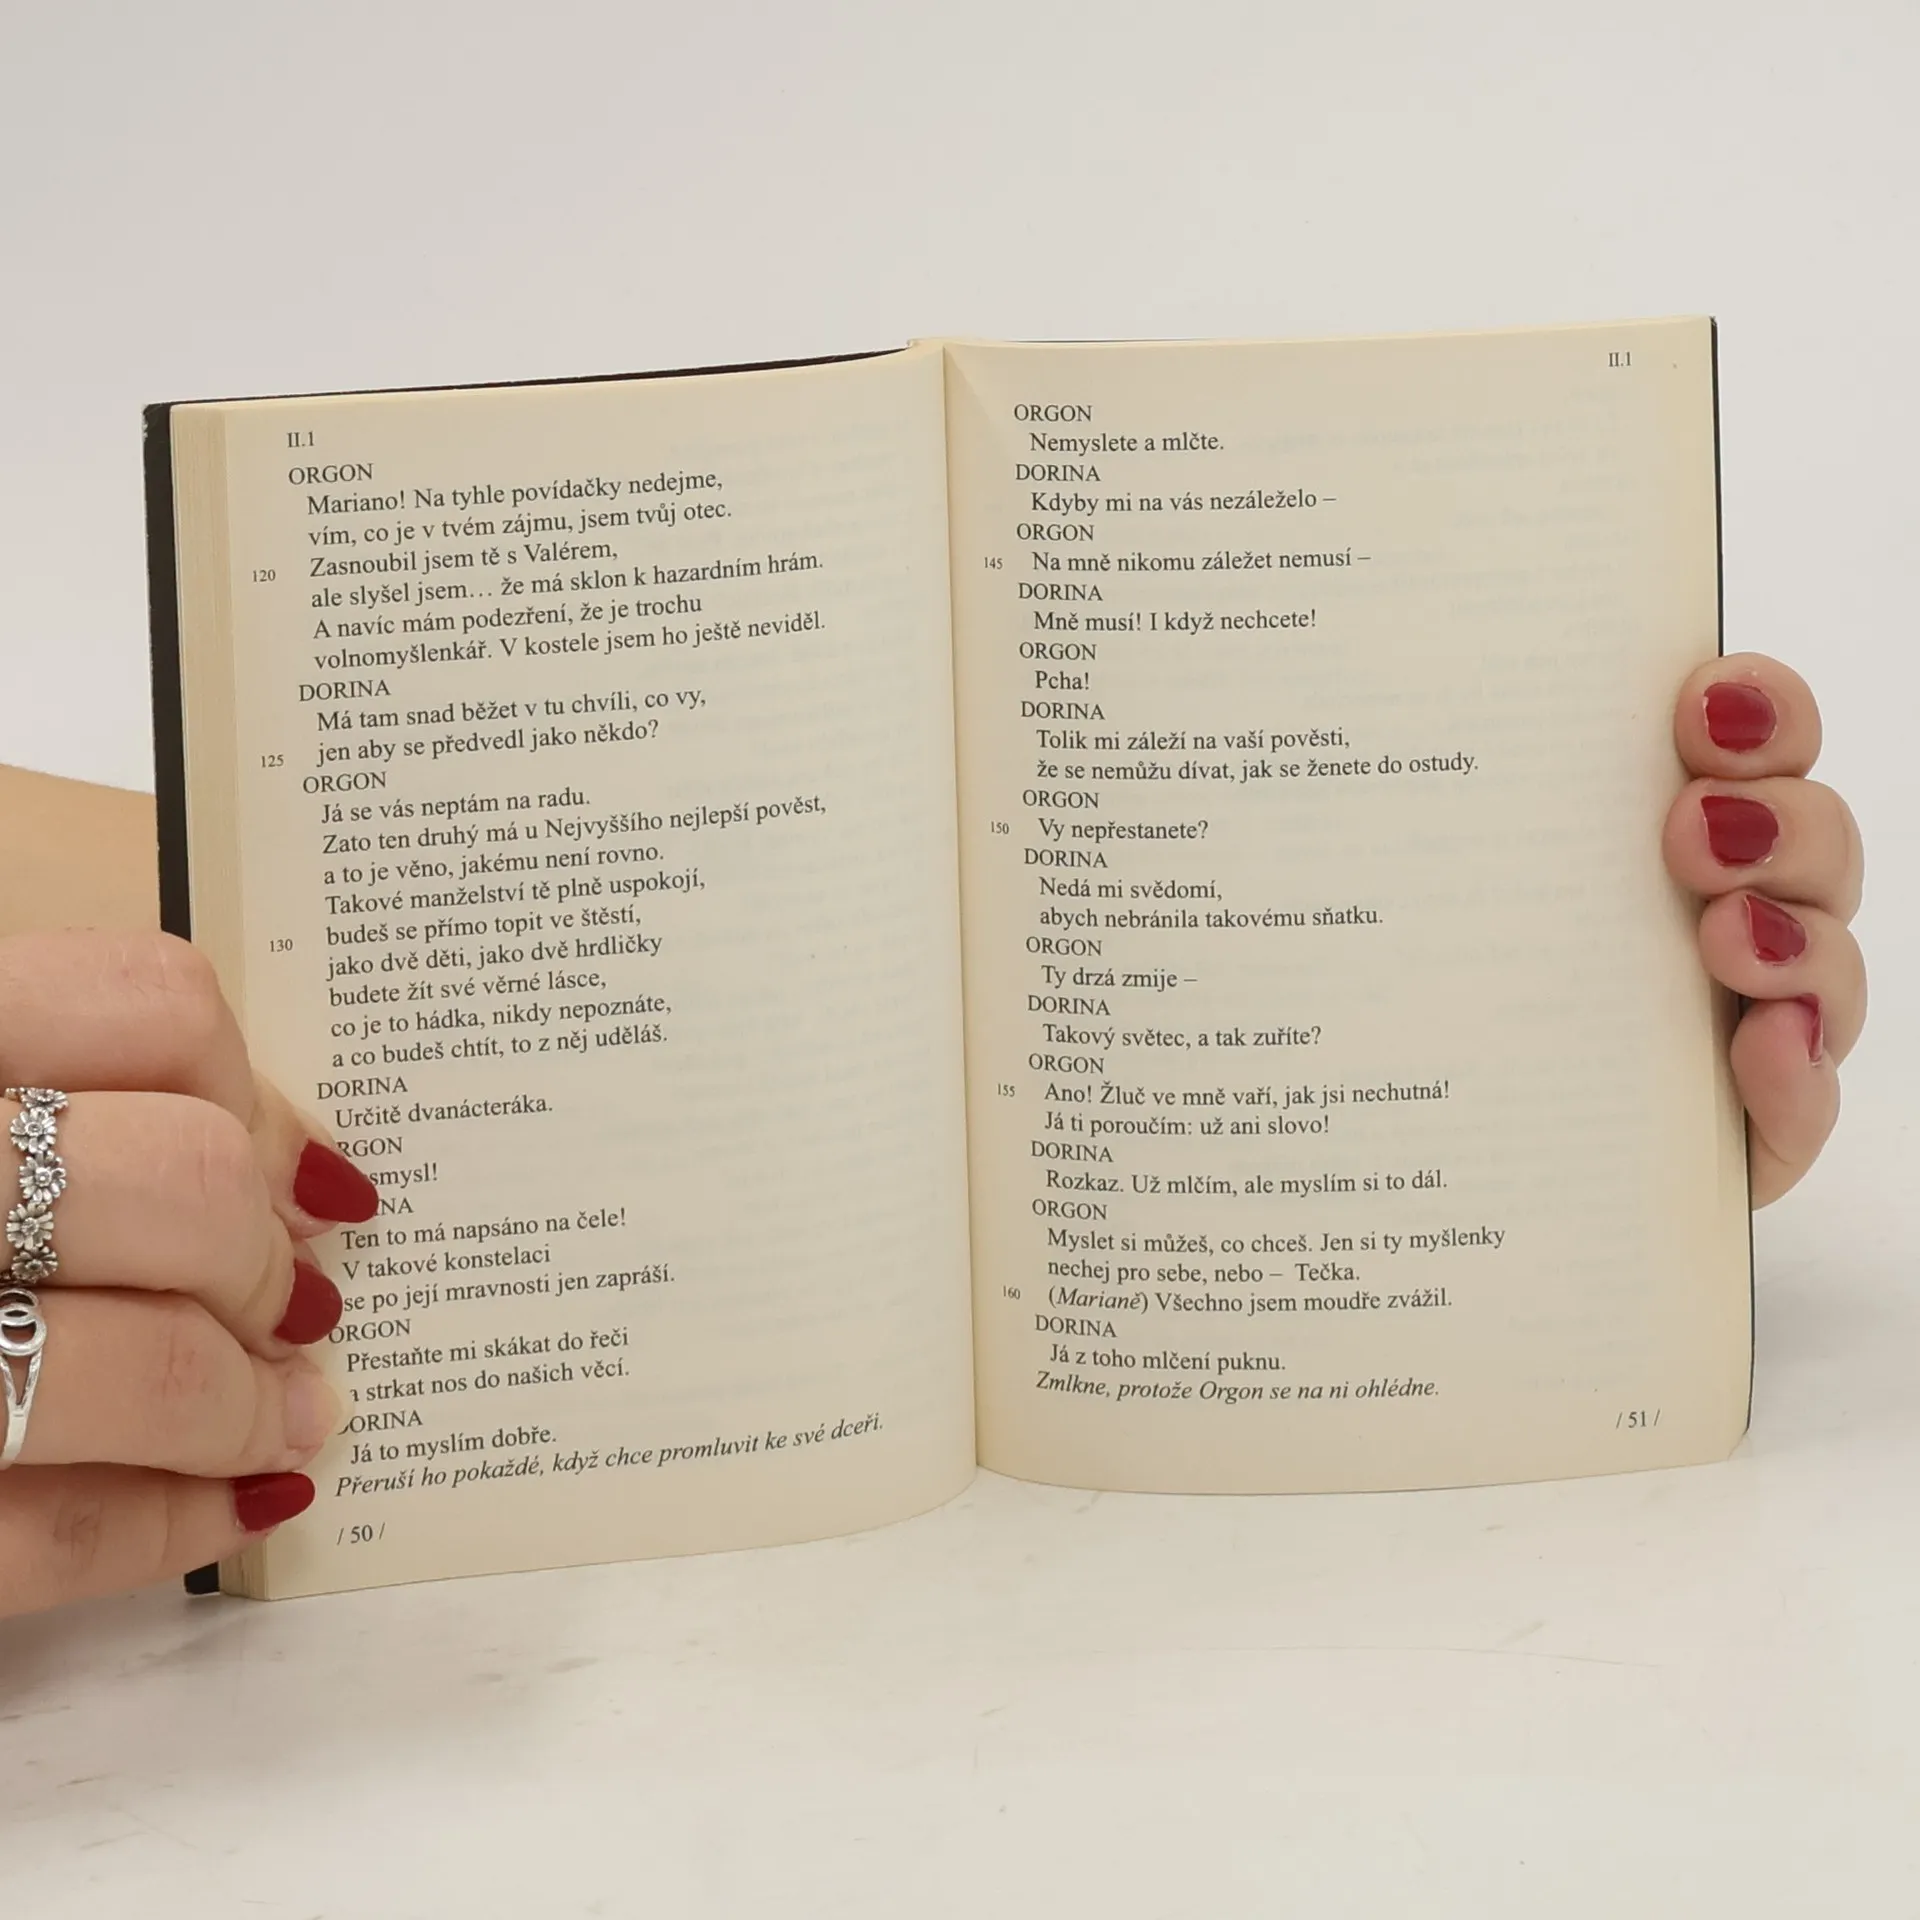 II.1
ORGON
Mariano! Na tyhle povídačky nedejme,
vím, co je v tvém zájmu, jsem tvůj otec.
Zasnoubil jsem tě s Valérem,
120 ale slyšel jsem… že má sklon k hazardním hrám.
A navíc mám podezření, že je trochu
volnomyšlenkář. V kostele jsem ho ještě neviděl.
DORINA
Má tam snad běžet v tu chvíli, co vy,
125 jen aby se předvedl jako někdo?
ORGON
Já se vás neptám na radu.
Zato ten druhý má u Nejvyššího nejlepší pověst,
a to je věno, jakému není rovno.
Takové manželství tě plně uspokojí,
130 budeš se přímo topit ve štěstí,
jako dvě děti, jako dvě hrdličky
budete žít své věrné lásce,
co je to hádka, nikdy nepoznáte,
a co budeš chtít, to z něj uděláš.
DORINA
Určitě dvanácteráka.
RGON
smysl!
NA
Ten to má napsáno na čele!
V takové konstelaci
se po její mravnosti jen zapráší.
ORGON
Přestaňte mi skákat do řeči
a strkat nos do našich věcí.
DORINA
Já to myslím dobře.
Přeruší ho pokaždé, když chce promluvit ke své dceři.
/ 50 /
II.1
ORGON
Nemyslete a mlčte.
DORINA
Kdyby mi na vás nezáleželo –
ORGON
145 Na mně nikomu záležet nemusí –
DORINA
Mně musí! I když nechcete!
ORGON
Pcha!
DORINA
Tolik mi záleží na vaší pověsti,
že se nemůžu dívat, jak se ženete do ostudy.
ORGON
150 Vy nepřestanete?
DORINA
Nedá mi svědomí,
abych nebránila takovému sňatku.
ORGON
Ty drzá zmije –
DORINA
Takový světec, a tak zuříte?
ORGON
155 Ano! Žluč ve mně vaří, jak jsi nechutná!
Já ti poroučím: už ani slovo!
DORINA
Rozkaz. Už mlčím, ale myslím si to dál.
ORGON
Myslet si můžeš, co chceš. Jen si ty myšlenky
nechej pro sebe, nebo – Tečka.
160 (Marianě) Všechno jsem moudře zvážil.
DORINA
Já z toho mlčení puknu.
Zmlkne, protože Orgon se na ni ohlédne.
/ 51 /